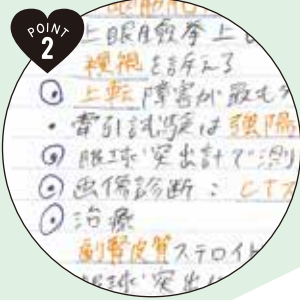 POINT
2
上眼瞼挙上
複視を訴える
上転障害が最も
・牽引試験は強陽
眼球突出計で測
画像診断：CT
治療
副腎皮質ステロイド
眼球突出